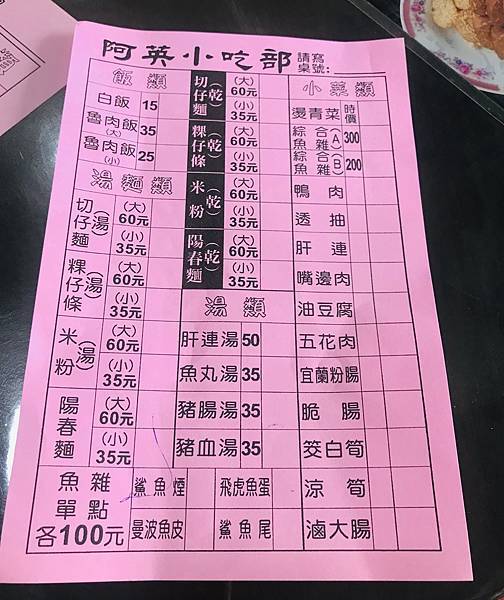 阿英小吃部 請寫桌號:
飯類
白飯 15
魯肉飯(大) 35
魯肉飯(小) 25
湯麵類
切仔麵(湯) (大)60元
(小)35元
粿仔條(湯) (大)60元
(小)35元
米粉(湯) (大)60元
(小)35元
陽春麵 (大)60元
(小)35元
魚雜單點各100元
鯊魚煙 飛虎魚蛋
曼波魚皮 鯊魚尾
切仔麵(乾) (大)60元
(小)35元
粿仔條(乾) (大)60元
(小)35元
米粉(乾) (大)60元
(小)35元
陽春麵(乾) (大)60元
(小)35元
湯類
肝連湯 50
魚丸湯 35
豬腸湯 35
豬血湯 35
小菜類
燙青菜 時價
綜合魚雜(A) 300
綜合魚雜(B) 200
鴨肉
透抽
肝連
嘴邊肉
油豆腐
五花肉
宜蘭粉腸
脆腸
筊白筍
涼筍
滷大腸